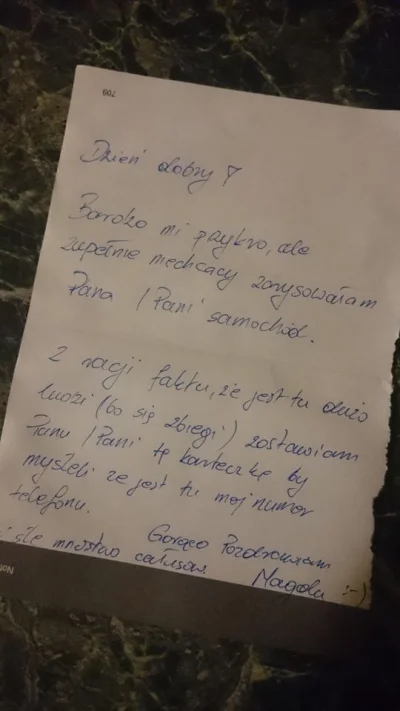 709
Dzień dobry!
Bardzo mi przykro, ale
zupełnie niechcący zarysowałam
Pana / Pani samochód.
Z racji faktu, że jest tu dużo
ludzi (bo się zbiegli) zostawiam
Panu / Pani tę karteczkę by
myśleli że jest tu mój numer
telefonu.
Gorąco Pozdrawiam
i ślę mnóstwo całusów Magda :-)
Not